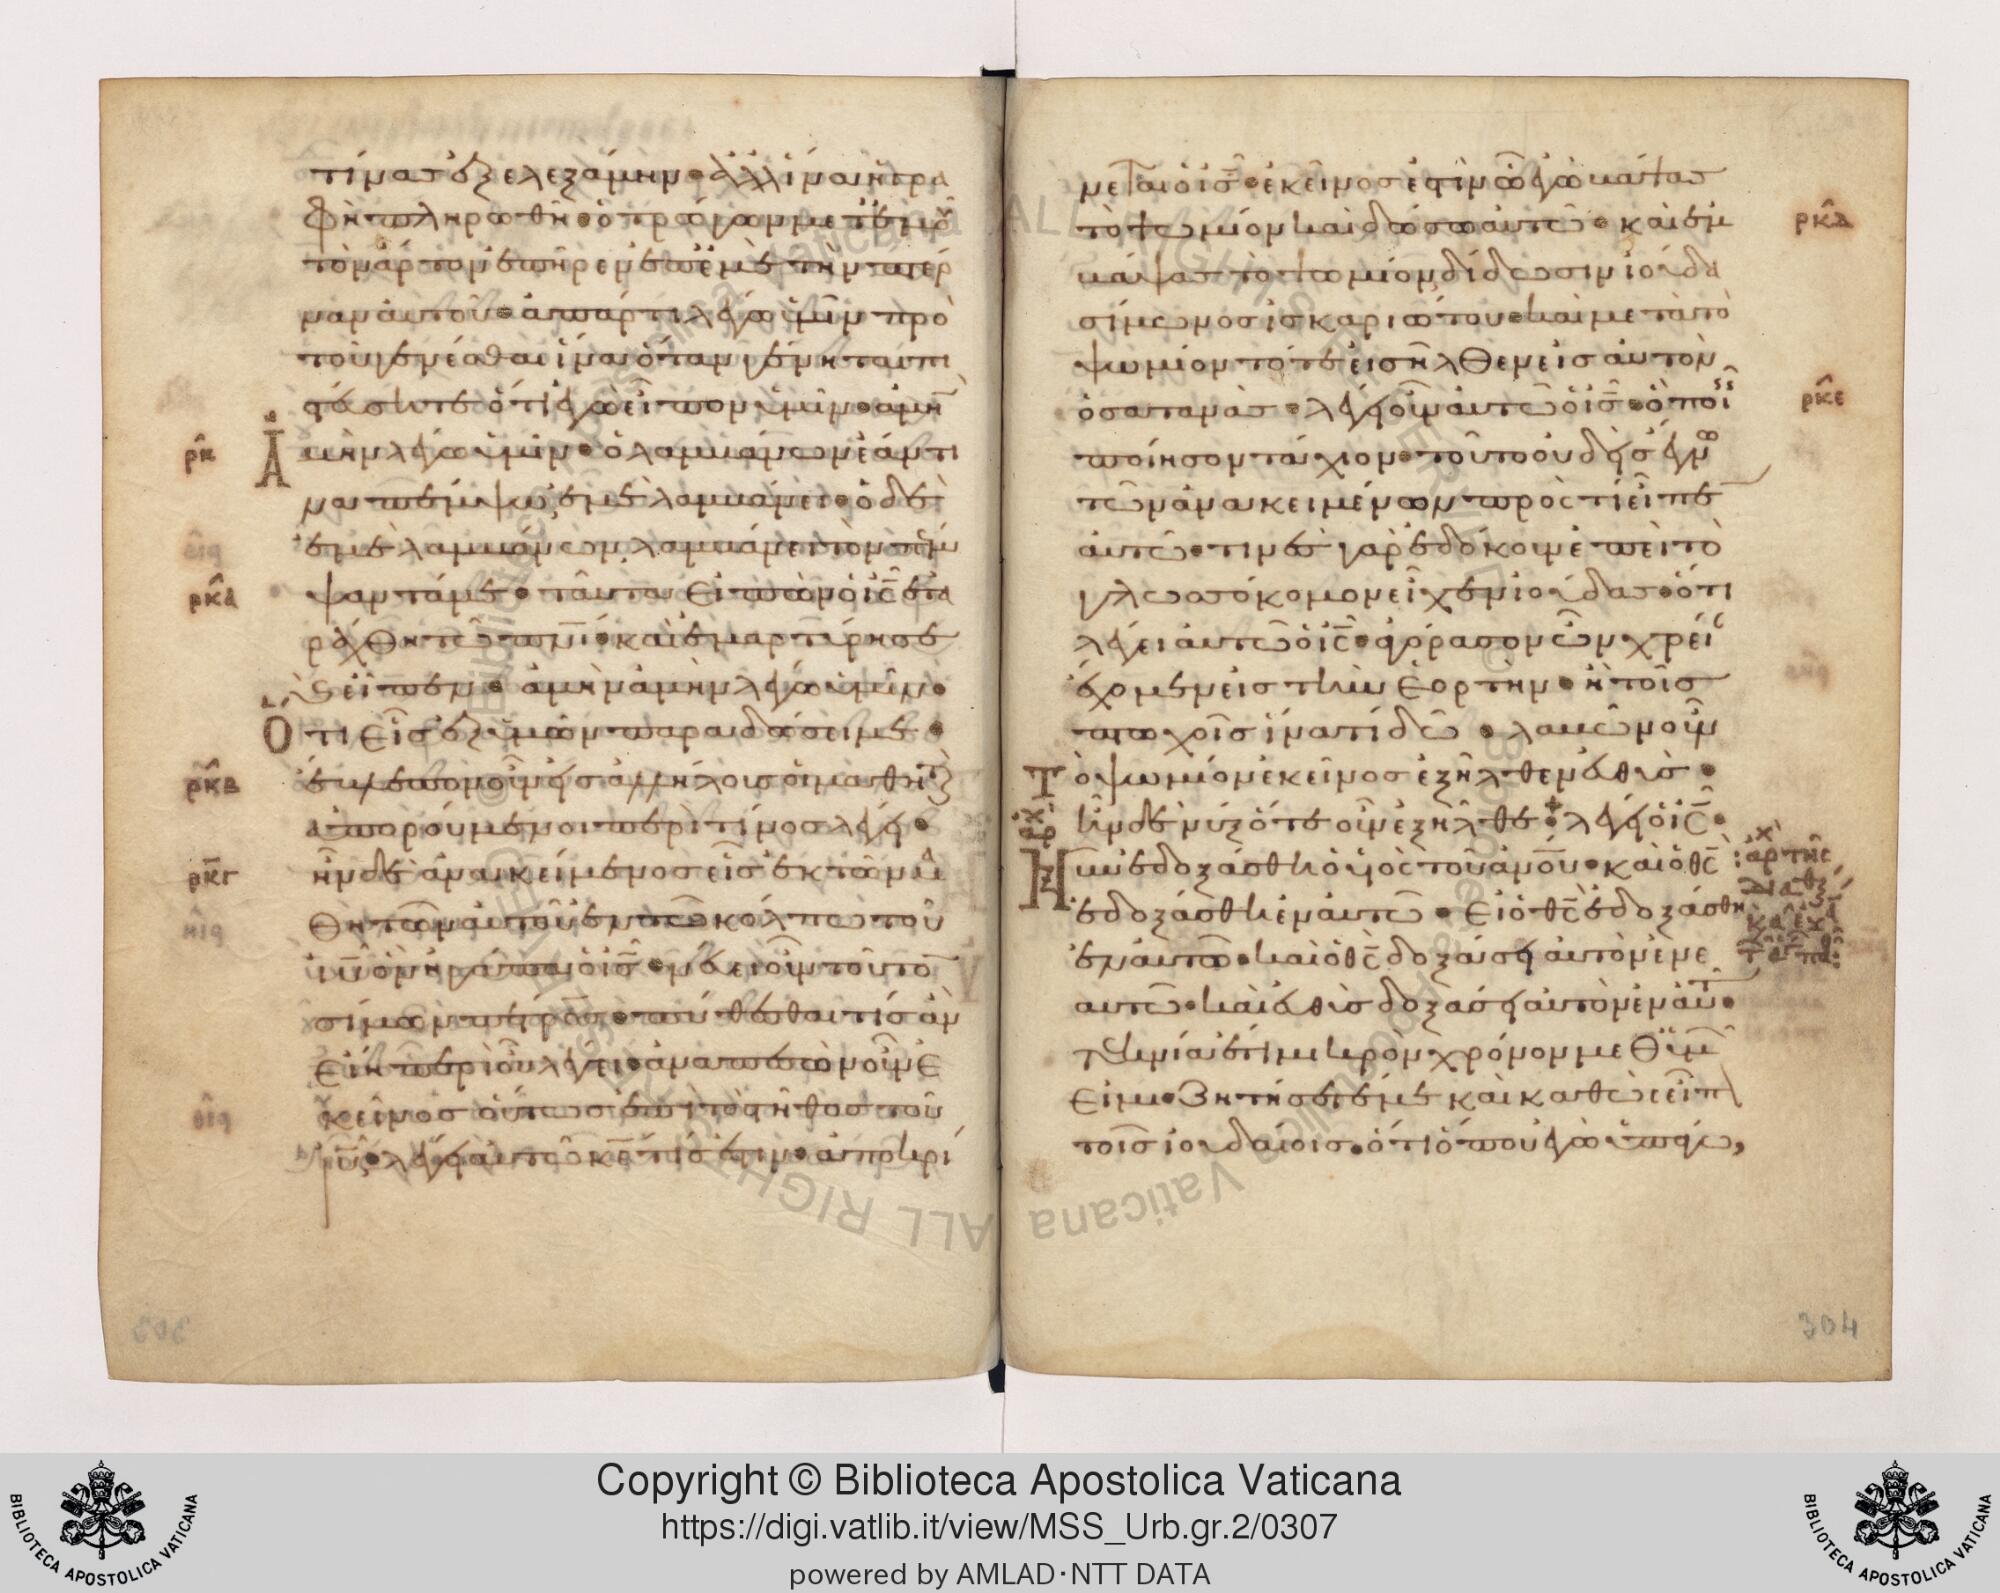 τίνασ ἐξελεξάμην· ἀλλ ἵνα ἡ γρα
φὴ πληρωθῆ· ὁ τρώγων μετ ἐμοῦ
τὸν ἄρτον ἐπῆρεν ἐπ ἐμὲ τὴν πτέρ
ναν αὐτοῦ· ἀπάρτι λέγω ὑμῖν πρὸ
τοῦ γενέσθαι ἵνα ὅταν γένηται πι
στεύσητε ὅτι ἐγὼ εἶπον ὑμῖν· ἀμὴν
ρκ
Ἀμὴν λέγω ὑμῖν· ὁ λαμβάνων ἐάν τι
να πέμψω ἐμὲ λαμβάνει· ὁ δὲ
ἐμὲ λαμβάνων λαμβάνει τὸν πέμ
ρκα
ψαντά με· ταῦτα εἰπὼν ὁ ις ἐτα
ράχθη τῶ πνι· καὶ ἐμαρτύρησε
καὶ εἶπεν· ἀμὴν ἀμὴν λέγω ὑμῖν·
Ὅτι εἷσ ἐξ ὑμῶν παραδώσει με·
ρκβ
ἔβλεπον οὖν εἰσ ἀλλήλουσ οἱ μαθηταὶ
ἀπορούμενοι περὶ τίνοσ λέγει·
ρκγ
ἦν δὲ ἀνακείμενοσ εἷσ ἐκ τῶν μα
θητῶν αὐτοῦ ἐν τῶ κόλπω τοῦ
ιυ ὃν ἠγάπα ὁ ισ· νεύει οὖν τούτω
σίμων πέτροσ· πυθέσθαι τίσ ἂν
εἴη περὶ οὗ λέγει· ἀναπεσὼν οὖν ἐ
κεῖνοσ οὕτωσ ἐπὶ τὸ στῆθοσ τοῦ
ιυ· λέγει αὐτῶ κε τίσ ἐστιν· ἀποκρί
νεται ὁ ισ· ἐκεῖνοσ ἐστὶν ὧ ἐγὼ βάψασ
ρκδ
τὸ ψωμίον καὶ δώσω αὐτῶ· καὶ ἐμ
βάψασ τὸ ψωμίον δίδωσιν ἰούδα
σίμωνοσ ἰσκαριώτου· καὶ μετὰ τὸ
ψωμίον τότε εἰσῆλθεν εἰσ αὐτὸν
ρκε
ὁ σατανᾶσ· λέγει οὖν αὐτῶ ὁ ισ· ὃ ποιεῖσ
ποίησον τάχιον· τοῦτο οὐδεὶσ ἔγνω
τῶν ἀνακειμένων πρὸς τί εἶπε
αὐτῶ· τινὲσ γὰρ ἐδόκουν ἐπεὶ τὸ
γλωσσόκομον εἶχεν ἰούδασ· ὅτι
λέγει αὐτῶ ὁ ις· ἀγόρασον ὧν χρεί
ἔχομεν εἰσ τὴν ἑορτήν· ἢ τοῖσ
πτωχοῖσ ἵνα τί δῶ· λαβὼν οὖν
Τὸ ψωμίον ἐκεῖνοσ ἐξῆλθεν εὐθύσ·
ἦν δὲ νύξ ὅτε οὖν ἐξῆλθε· λέγει ὁ ις·
Νῦν ἐδοξάσθη ὁ υἱὸς τοῦ ανου· καὶ ὁ θς
ἐδοξάσθη ἐν αὐτῶ· εἰ ὁ θς ἐδοξάσθη
ἐν αὐτῶ· καὶ ὁ θς δοξάσει αὐτὸν ἐν ἑ
αυτῶ· καὶ εὐθὺσ δοξάσει αὐτὸν ἐν αὐτῶ·
τεκνία ἔτι μικρὸν χρόνον μεθ ὑμῶν
εἰμι· ζητήσετέ με καὶ καθὼς εἶπον
τοῖσ ἰουδαίοισ· ὅτι ὅπου ἐγὼ ὑπάγω,
304
ALL RIGHTS RESERVED © Biblioteca Apostolica Vaticana
Copyright © Biblioteca Apostolica Vaticana
https://digi.vatlib.it/view/MSS_Urb.gr.2/0307
powered by AMLAD·NTT DATA
BIBLIOTECA APOSTOLICA VATICANA
BIBLIOTECA APOSTOLICA VATICANA